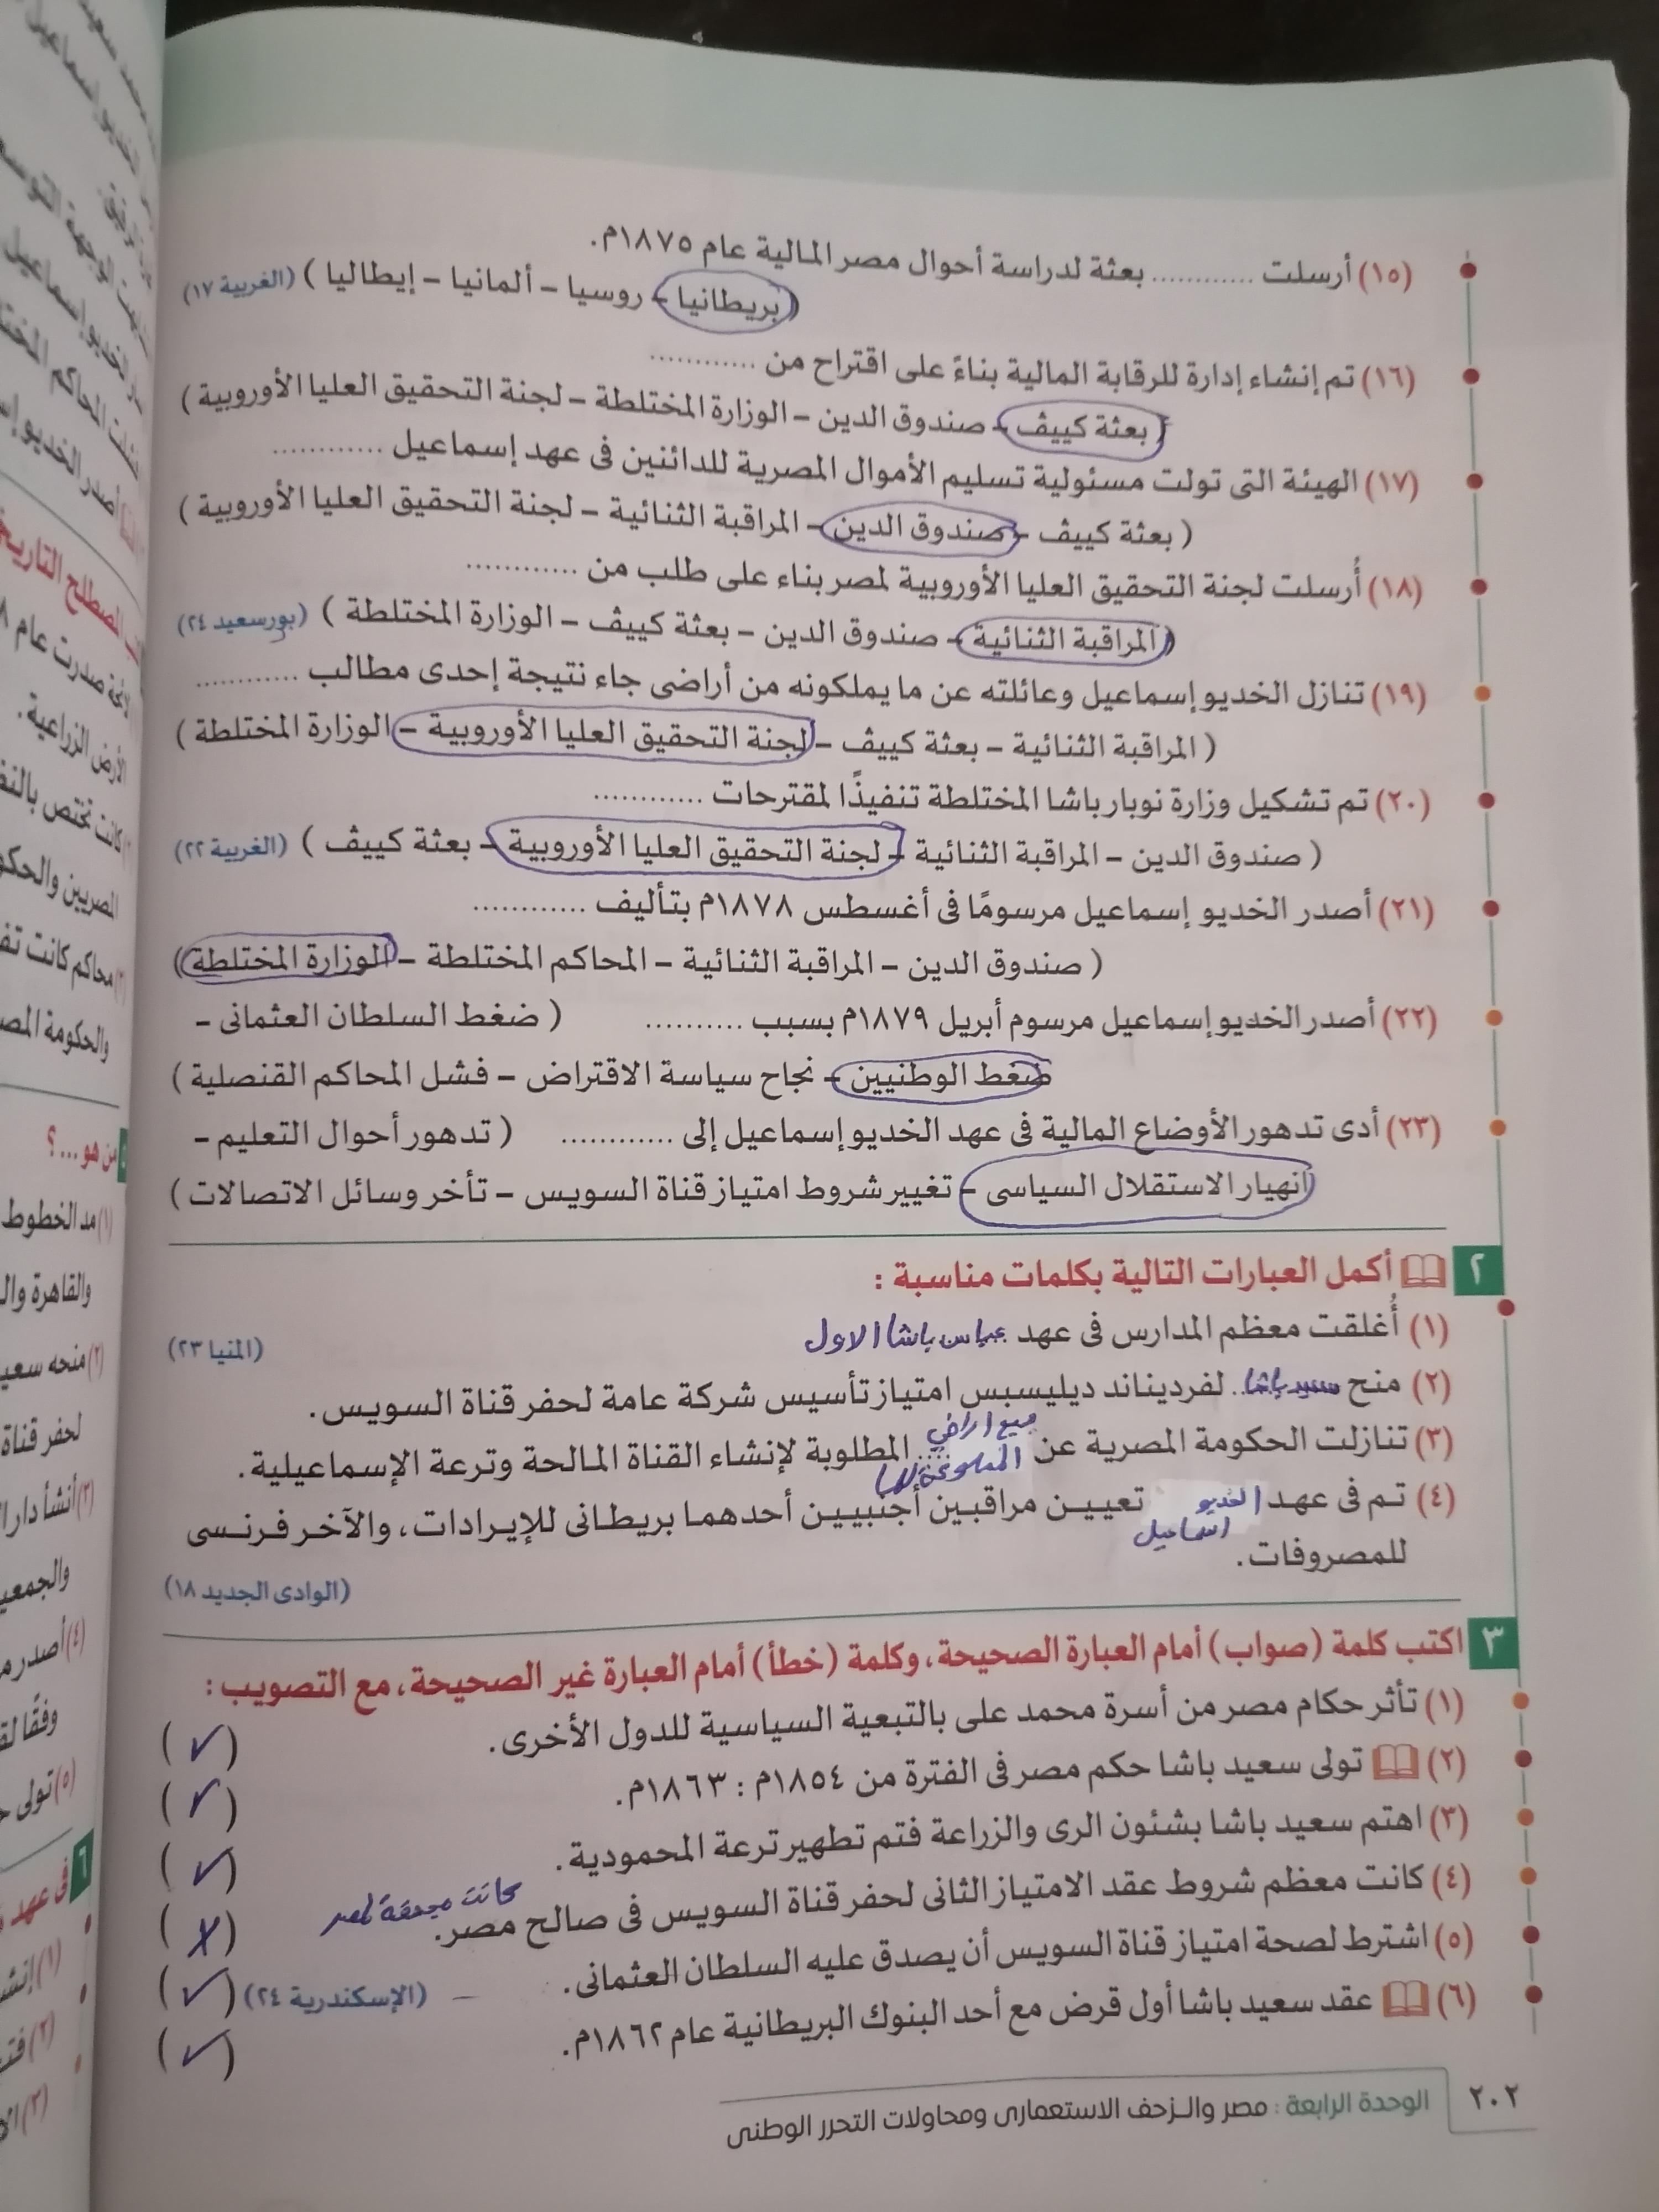 (١٥) أرسلت ............ بعثة لدراسة أحوال مصر المالية عام ١٨٧٥م.
(بريطانيا – روسيا – ألمانيا – إيطاليا ) (الغربية ١٧)
(١٦) تم إنشاء إدارة للرقابة المالية بناءً على اقتراح من ............
( بعثة كييف – صندوق الدين – الوزارة المختلطة – لجنة التحقيق العليا الأوروبية )
(١٧) الهيئة التى تولت مسئولية تسليم الأموال المصرية للدائنين فى عهد إسماعيل ............
( بعثة كييف – صندوق الدين – المراقبة الثنائية – لجنة التحقيق العليا الأوروبية )
(١٨) أُرسلت لجنة التحقيق العليا الأوروبية لمصر بناء على طلب من ............
(المراقبة الثنائية – صندوق الدين – بعثة كييف – الوزارة المختلطة ) (بورسعيد ٢٤)
(١٩) تنازل الخديو إسماعيل وعائلته عن ما يملكونه من أراضى جاء نتيجة إحدى مطالب ............
( المراقبة الثنائية – بعثة كييف – لجنة التحقيق العليا الأوروبية – الوزارة المختلطة )
(٢٠) تم تشكيل وزارة نوبار باشا المختلطة تنفيذًا لمقترحات ............
( صندوق الدين – المراقبة الثنائية – لجنة التحقيق العليا الأوروبية – بعثة كييف ) (الغربية ٢٢)
(٢١) أصدر الخديو إسماعيل مرسومًا فى أغسطس ١٨٧٨م بتأليف ............
( صندوق الدين – المراقبة الثنائية – المحاكم المختلطة – الوزارة المختلطة )
(٢٢) أصدر الخديو إسماعيل مرسوم أبريل ١٨٧٩م بسبب .......... ( ضغط السلطان العثمانى –
ضغط الوطنيين – نجاح سياسة الاقتراض – فشل المحاكم القنصلية )
(٢٣) أدى تدهور الأوضاع المالية فى عهد الخديو إسماعيل إلى ............ ( تدهور أحوال التعليم –
انهيار الاستقلال السياسى – تغيير شروط امتياز قناة السويس – تأخر وسائل الاتصالات )
٢ أكمل العبارات التالية بكلمات مناسبة :
(١) أُغلقت معظم المدارس فى عهد عباس باشا الاول (المنيا ٢٣)
(٢) منح سعيد باشا لفرديناند ديليسبس امتياز تأسيس شركة عامة لحفر قناة السويس.
(٣) تنازلت الحكومة المصرية عن جميع اراضي المملوكة لها المطلوبة لإنشاء القناة المالحة وترعة الإسماعيلية.
(٤) تم فى عهد الخديو اسماعيل تعيين مراقبين أجنبيين أحدهما بريطانى للإيرادات، والآخر فرنسى
للمصروفات.
(الوادى الجديد ١٨)
٣ اكتب كلمة (صواب) أمام العبارة الصحيحة، وكلمة (خطأ) أمام العبارة غير الصحيحة، مع التصويب :
(١) تأثر حكام مصر من أسرة محمد على بالتبعية السياسية للدول الأخرى. (✓)
(٢) تولى سعيد باشا حكم مصر فى الفترة من ١٨٥٤م : ١٨٦٣م. (✓)
(٣) اهتم سعيد باشا بشئون الرى والزراعة فتم تطهير ترعة المحمودية. (✓)
(٤) كانت معظم شروط عقد الامتياز الثانى لحفر قناة السويس فى صالح مصر. كانت مجحفة لمصر (✗)
(٥) اشترط لصحة امتياز قناة السويس أن يصدق عليه السلطان العثمانى. (الإسكندرية ٢٤) (✓)
(٦) عقد سعيد باشا أول قرض مع أحد البنوك البريطانية عام ١٨٦٢م. (✓)
٢٠٢ الوحدة الرابعة : مصر والزحف الاستعمارى ومحاولات التحرر الوطنى